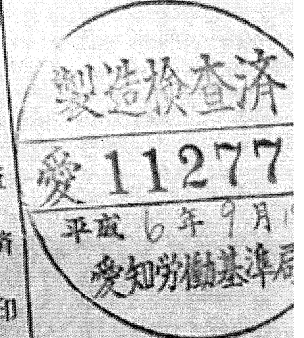 製造検査済
愛 11277
平成 6 年 9 月
愛知労働基準局
印